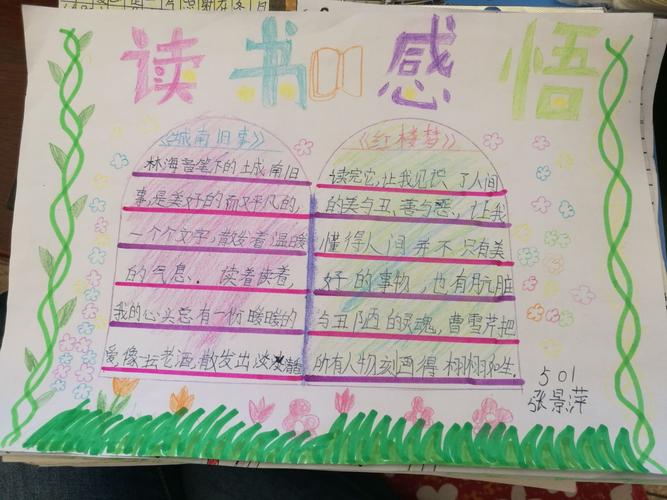 读书感悟
《城南旧事》
林海音笔下的城南旧
事,是美好的而又平凡的,
一个个文字,散发着温暖
的气息.. 读者读者,
我的心头总有一份暖暖的
爱像坛老酒,散发出淡淡
《红楼梦》
读完它,让我见识了人间
的美与丑、善与恶.,让我
懂得人间并不只有美
好的事物,也有肮脏
与丑陋的灵魂,曹雪芹把
所有人物刻画得栩栩如生.
501
张景萍